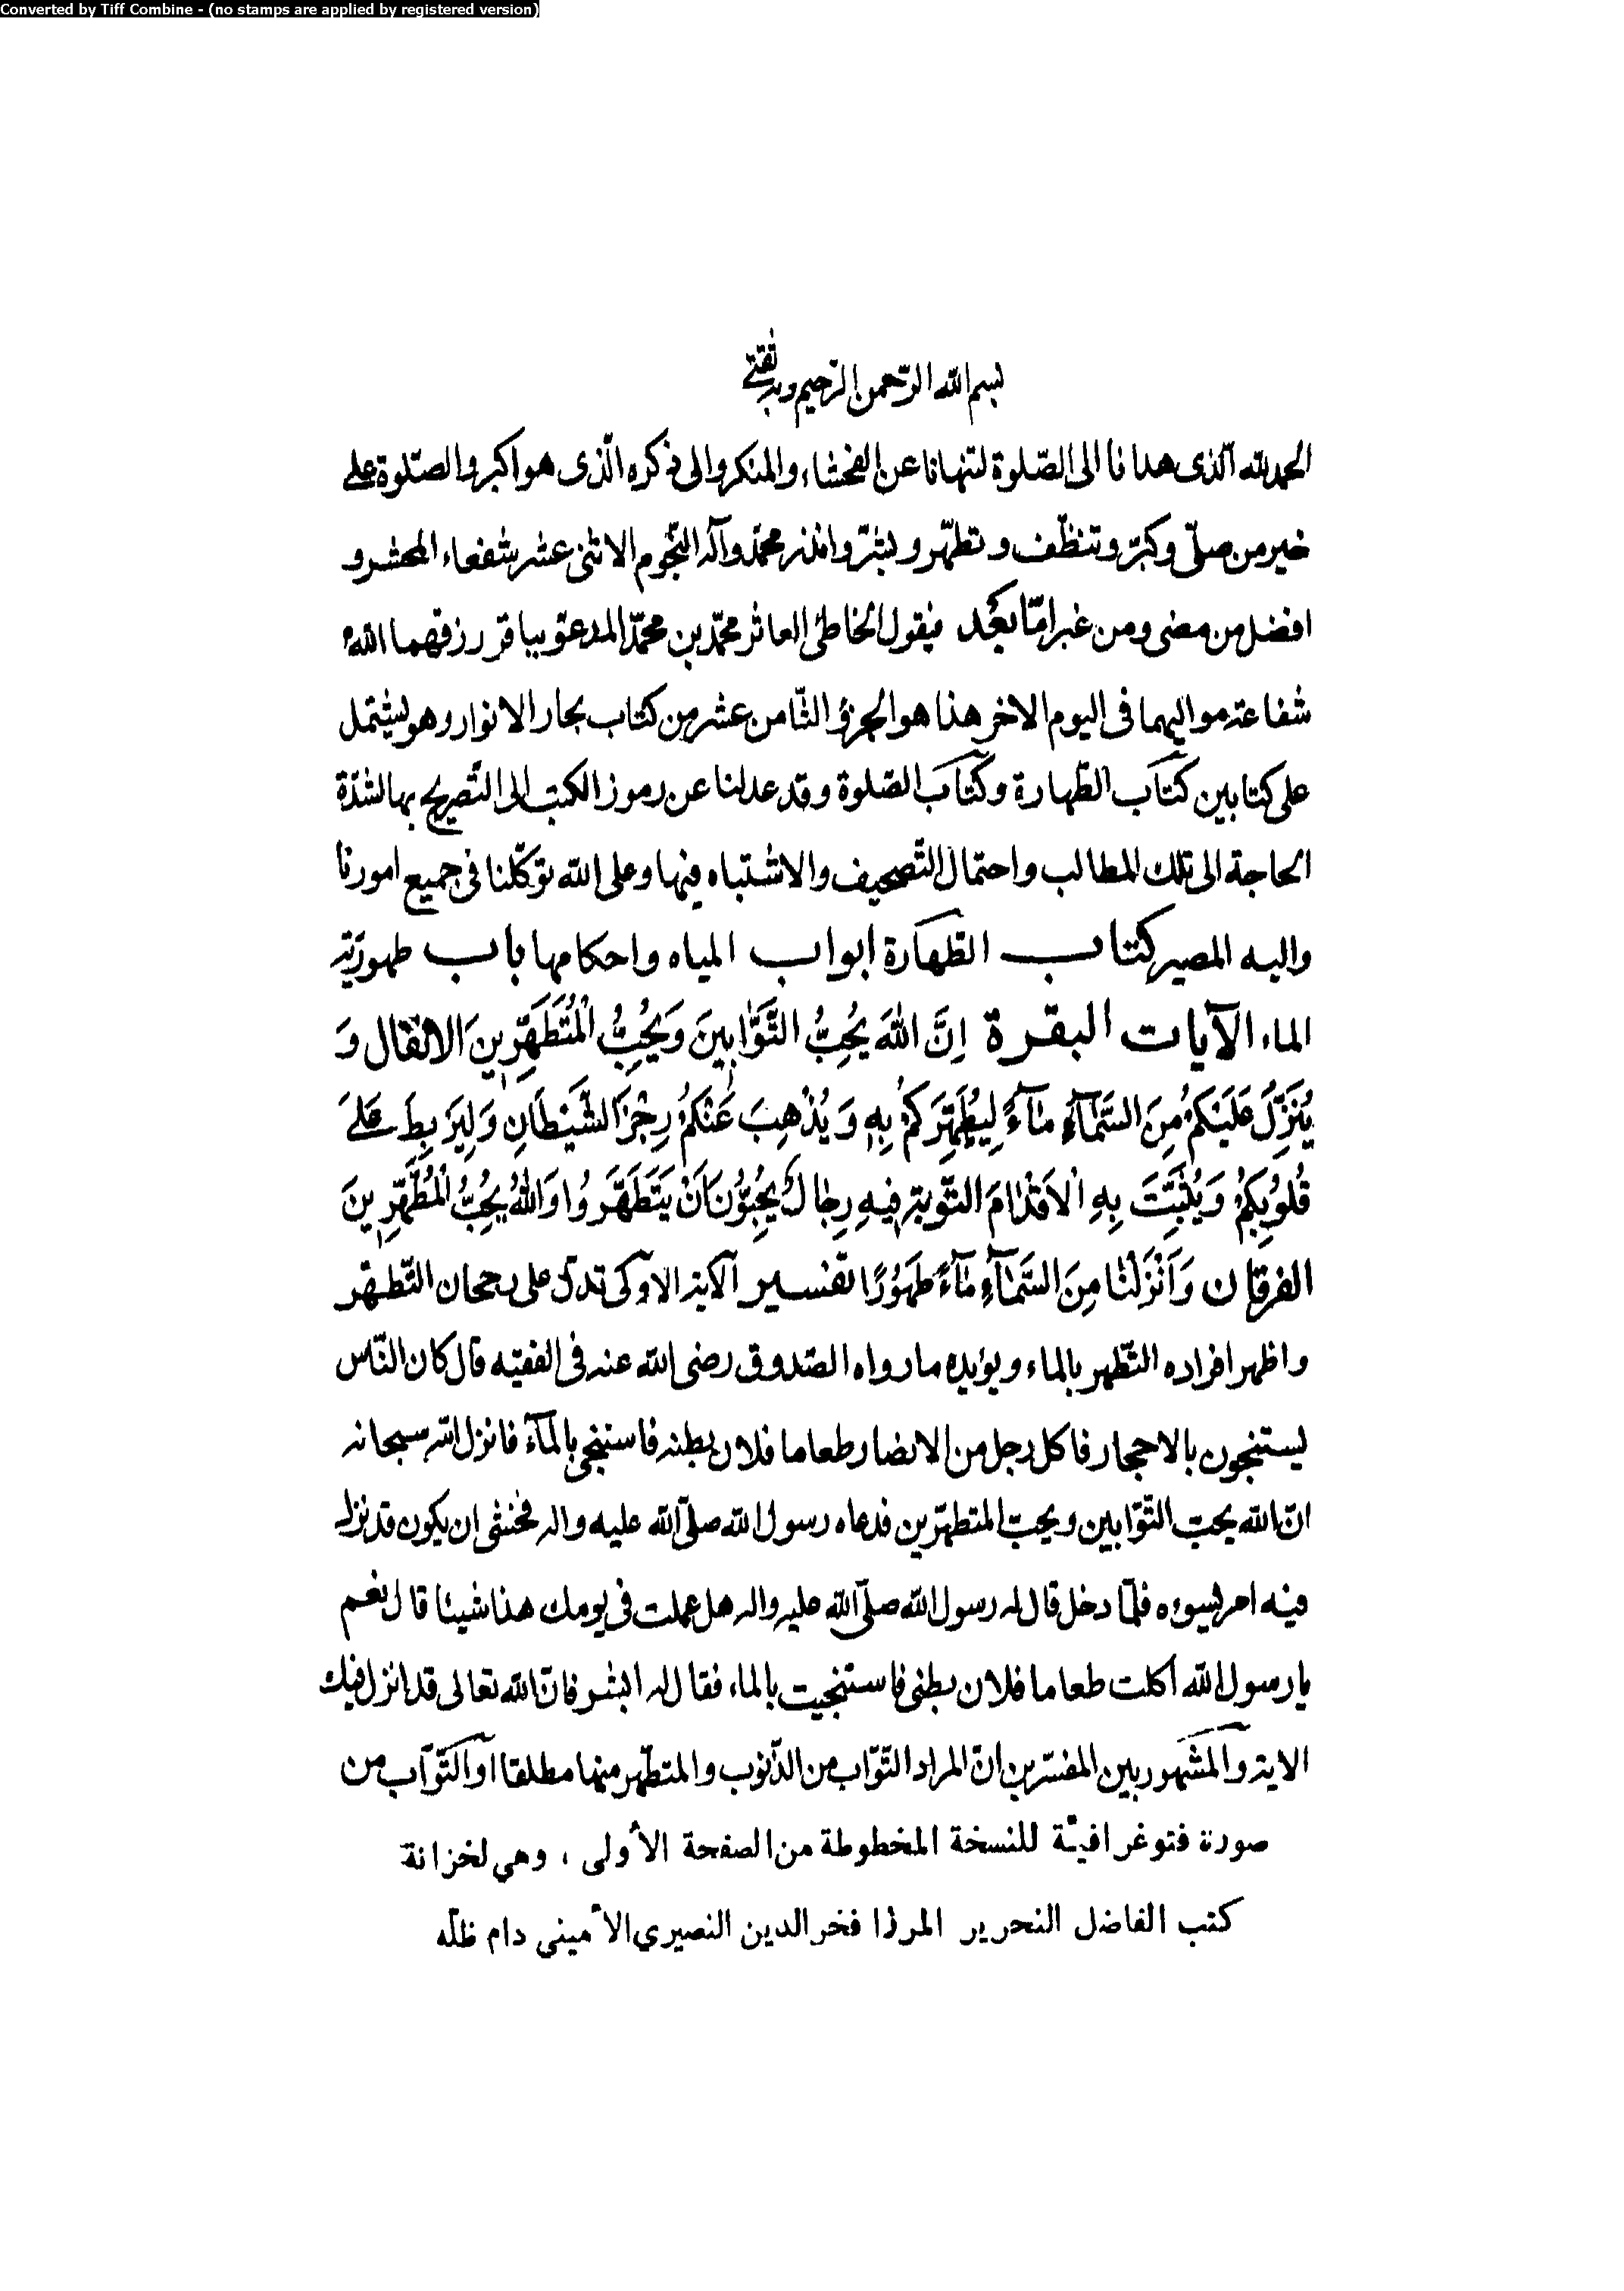 Converted by Tiff Combine - (no stamps are applied by registered version)
بسم الله الرّحمن الرّحيم وبه ثقتي
الحمد لله الّذى هدانا الى الصّلوة لتنهانا عن الفحشاء والمنكر والى ذكره الّذى هو اكبر والصّلوة على
خير من صلّى وكبّر وتنظّف وتطهّر وبشّر وانذر محمّد وآله النّجوم الاثنى عشر شفعاء المحشر و
افضل من مضى ومن غبر امّا بعد فيقول الخاطئ العاثر محمّد بن محمّد المدعوّ بباقر رزقهما الله
شفاعة مواليهما فى اليوم الاخر هذا هو الجزؤ الثّامن عشر من كتاب بحار الانوار وهو يشتمل
على كتابين كتاب الطّهارة وكتاب الصّلوة وقد عدلنا عن رموز الكتب الى التّصريح بها لشدّة
الحاجة الى تلك المطالب واحتمال التّصحيف والاشتباه فيها وعلى الله توكّلنا فى جميع امورنا
واليه المصير كتاب الطّهارة ابواب المياه واحكامها باب طهوريّة
الماء الآيات البقرة اِنَّ اللهَ يُحِبُّ التَّوّٰابِينَ وَيُحِبُّ الْمُتَطَهِّرِينَ الانفال وَ
يُنَزِّلُ عَلَيْكُمْ مِنَ السَّمٰآءِ مٰآءً لِيُطَهِّرَكُمْ بِهِ وَيُذْهِبَ عَنْكُمْ رِجْزَ الشَّيْطَانِ وَلِيَرْبِطَ عَلىٰ
قُلُوبِكُمْ وَيُثَبِّتَ بِهِ الْاَقْدٰامَ التّوبة فِيهِ رِجٰالٌ يُحِبُّونَ اَنْ يَتَطَهَّرُوا وَاللهُ يُحِبُّ الْمُطَّهِّرِينَ
الفرقان وَاَنْزَلْنٰا مِنَ السَّمٰآءِ مٰآءً طَهُورًا تفسير الآية الاولى تدلّ على رجحان التّطهّر
واظهر افراده التّطهر بالماء ويؤيده ما رواه الصّدوق رضى الله عنه فى الفقيه قال كان النّاس
يستنجون بالاحجار فاكل رجل من الانصار طعاما فلان بطنه فاستنجى بالمآء فانزل الله سبحانه
انّ الله يحبّ التّوّابين ويحبّ المتطهّرين فدعاه رسول الله صلّى الله عليه واله فخشى ان يكون قد نزل
فيه امر يسوءه فلمّا دخل قال له رسول الله صلّى الله عليه واله هل عملت فى يومك هذا شيئا قال نعم
يا رسول الله اكلت طعاما فلان بطنى فاستنجيت بالماء فقال له ابشر فانّ الله تعالى قد انزل فيك
الاية والمشهور بين المفسّرين انّ المراد التّوّاب من الذّنوب والمتطهّر منها مطلقا او التّوّاب من
صورة فتوغرافيّة للنسخة المخطوطة من الصفحة الأولى ، وهي لخزانة
كتب الفاضل النحرير المرزا فخر الدين النصيري الأميني دام ظلّه